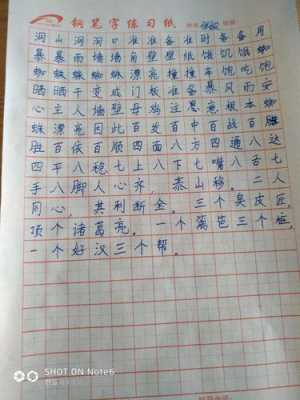 钢笔字练习纸
洞山洞洞口准准备准时备备月
暴暴雨墙墙角壁壁纸饿饥饿蜘
蜘蛛蜘蛛漂亮撞撞车饱吃饱
晒晒干变成门板准备暴风雨安
心主人墙壁母鸡注意意根本蜘
蛛漂亮因此百发百中百战百胜
胜百依百顺四面八方四通八达
四平八稳七上八下七嘴八舌七
手八脚人心齐,泰山移。二人
同心,其利断金。三个臭皮匠,
顶个诸葛亮。一个篱笆三个桩,
一个好汉三个帮。
SHOT ON Note6